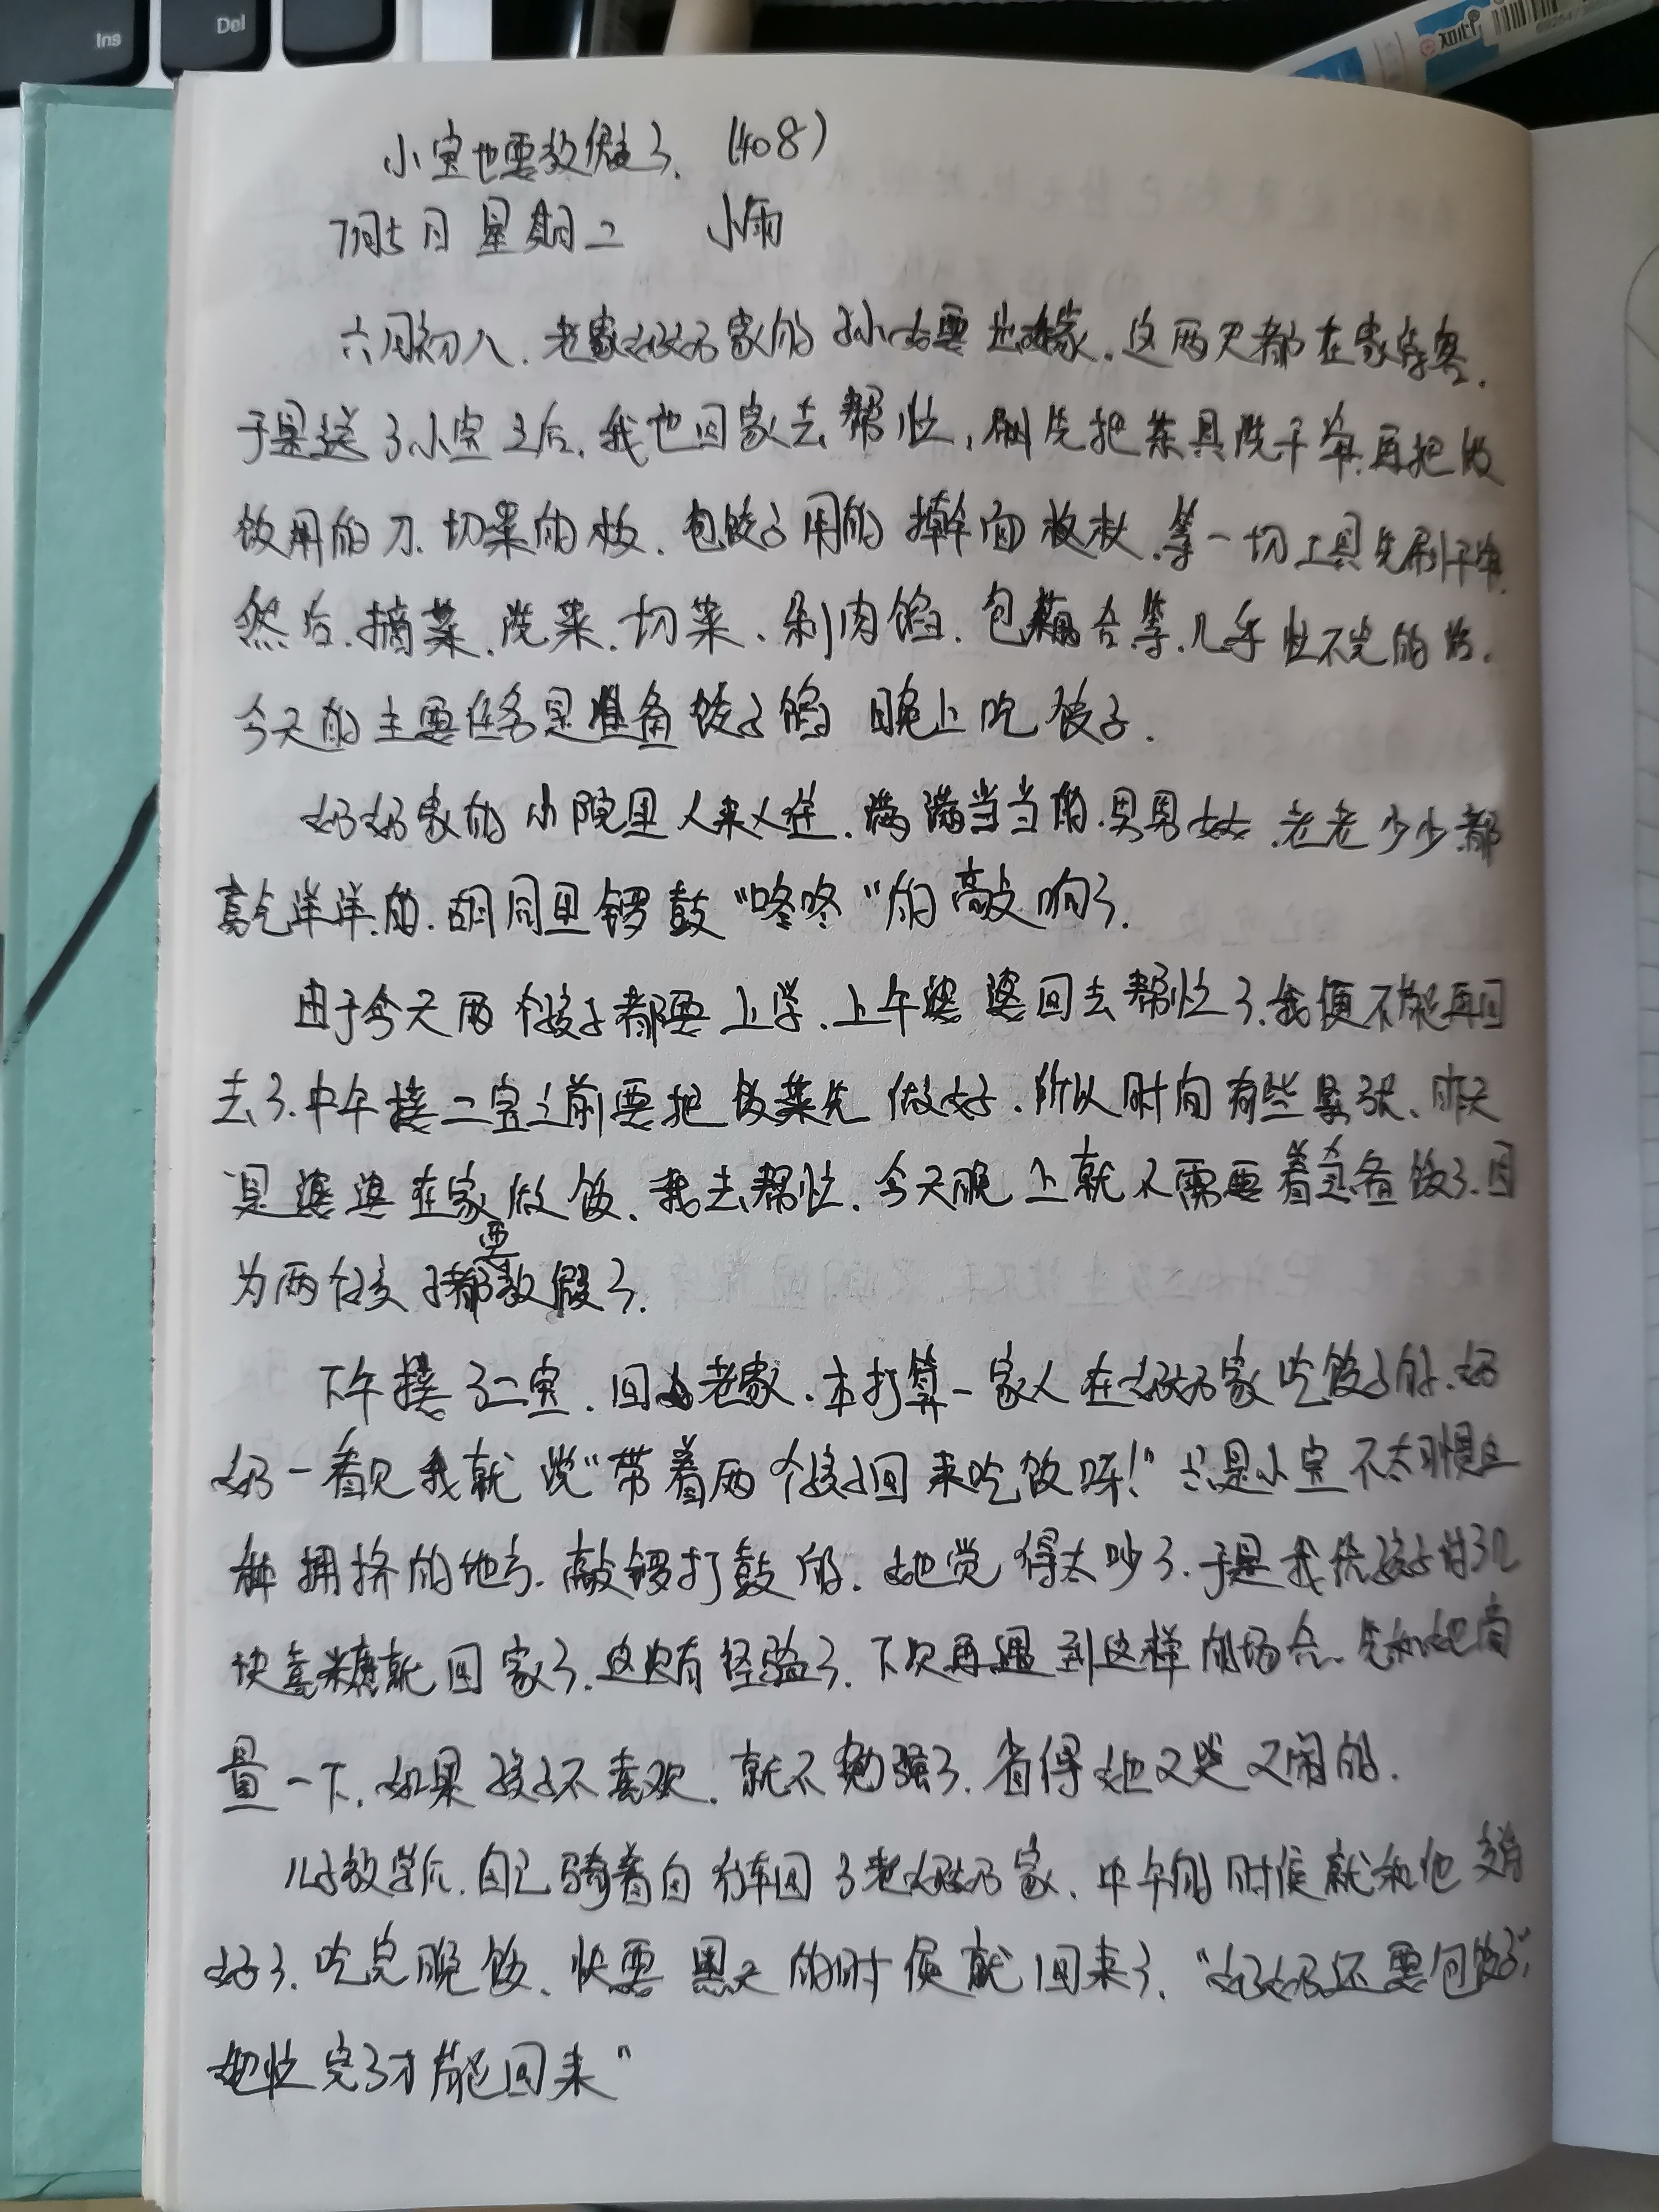 Ins
Del
小宝也要放假了.（408）
7月5日 星期二 小雨
六月初八.老家奶奶家的孙女要出嫁.这两天都在家待客.
于是送了小宝之后.我也回家去帮忙,刷先把茶具洗干净.再把做
饭用的刀.切菜的板.包饺子用的擀面杖.等一切工具先刷干净.
然后.摘菜.洗菜.切菜、剁肉馅.包藕合等.几乎忙不完的的.
今天的主要任务是准备饺子馅 晚上吃饺子.
奶奶家的小院里人来人往.满满当当的.男男女女.老老少少都
喜气洋洋.的.胡同里锣鼓“咚咚”的敲响了.
由于今天两个孩子都要上学.上午婆婆回去帮忙了.我便不能再回
去了.中午接二宝之前要把饭菜先做好.所以时间有些紧张、昨天
是婆婆在家做饭.我去帮忙.今天晚上就不需要着急备饭了.因
为两个孩子都要放假了.
下午接了二宝.回老家.本打算一家人在奶奶家吃饺子的.奶
奶一看见我就说“带着两个孩子回来吃饭呀!”只是小宝不太习惯这
种拥挤的地方.敲锣打鼓的.她觉得太吵了.于是我给孩子拿了几
块喜糖就回家了.这次有经验了.下次再遇到这样的场合.先和她商
量一下.如果孩子不喜欢.就不勉强了.省得她又哭又闹的.
儿子放学后.自己骑着自行车回了老奶奶家.中午的时候就和他交待
好了.吃完晚饭.快要黑天的时候就回来了.“奶奶还要包饺子,
她忙完了才能回来”